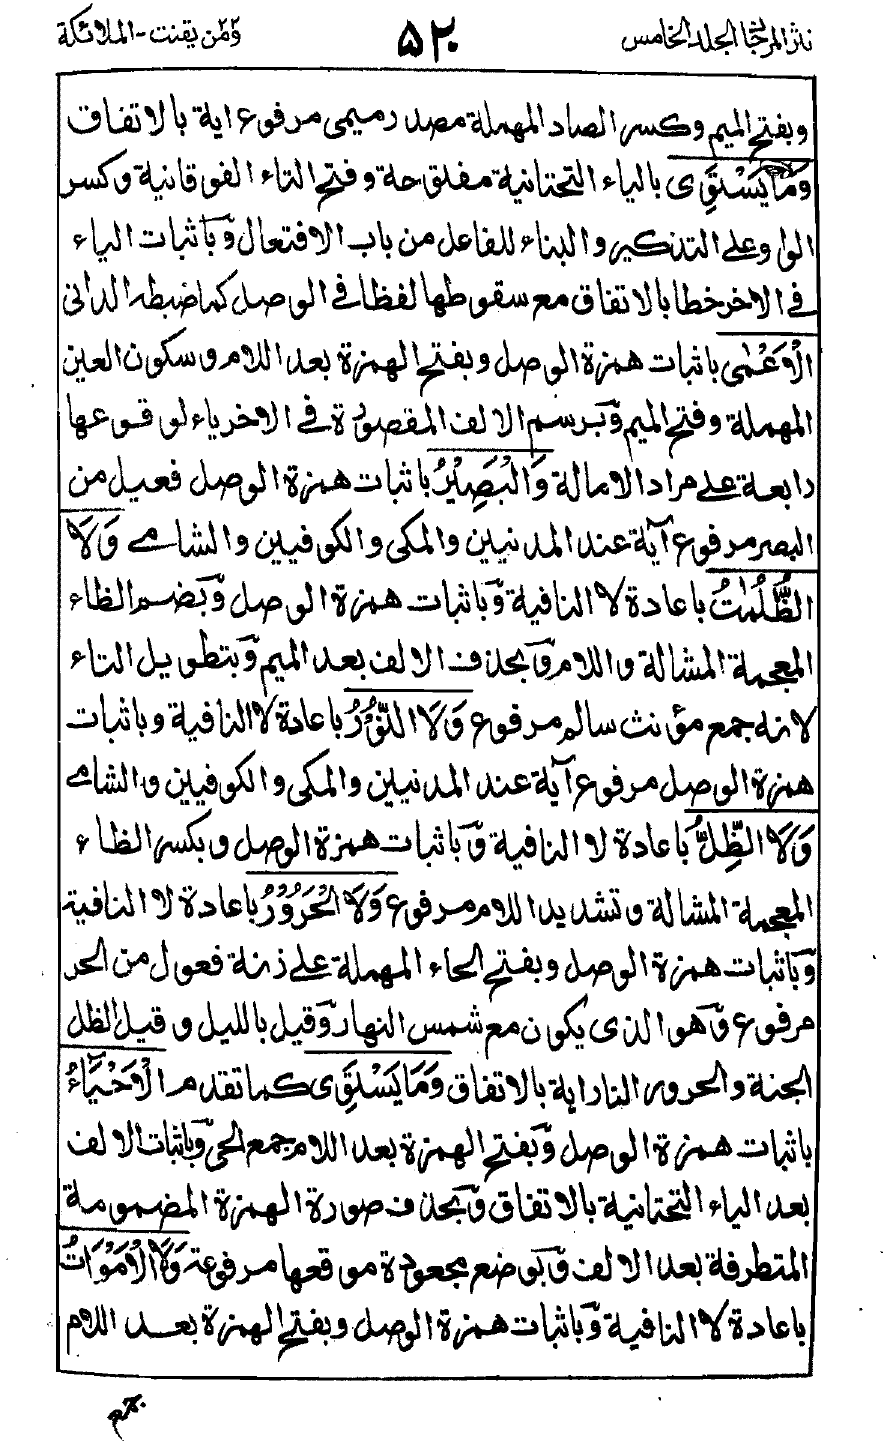 نثر المرجان الجلد الخامس ٥٢٠ ومن يقنت - الملائكة
وبفتح الميم وكسر الصاد المهملة مصدر ميمى مرفوع اية بالاتفاق
وَمَا يَسْتَوِى بالياء التحتانية مفتوحة وفتح التاء الفوقانية وكسر
الواو على التذكير والبناء للفاعل من باب الافتعال وباثبات الياء
فى الاخر خطا بالاتفاق مع سقوطها لفظا فى الوصل كما ضبطه الدانى
الْاَعْمٰى باثبات همزة الوصل وبفتح الهمزة بعد اللام وسكون العين
المهملة وفتح الميم وبرسم الالف المقصورة فى الاخر ياء لوقوعها
رابعة على مراد الامالة وَالْبَصِيْرُ باثبات همزة الوصل فعيل من
البصر مرفوع آية عند المدنيين والمكى والكوفيين والشامى وَلَا
الظُّلُمٰتُ باعادة لا النافية وباثبات همزة الوصل وبضم الظاء
المعجمة المشالة واللام وبحذف الالف بعد الميم وبتطويل التاء
لانه جمع مؤنث سالم مرفوع وَلَا النُّوْرُ باعادة لا النافية وباثبات
همزة الوصل مرفوع آية عند المدنيين والمكى والكوفيين والشامى
وَلَا الظِّلُّ باعادة لا النافية وباثبات همزة الوصل وبكسر الظاء
المعجمة المشالة وتشديد اللام مرفوع وَلَا الْحَرُوْرُ باعادة لا النافية
وباثبات همزة الوصل وبفتح الحاء المهملة على زنة فعول من الحر
مرفوع وهو الذى يكون مع شمس النهار وقيل بالليل وقيل الظل
الجنة والحرور النار اية بالاتفاق وَمَا يَسْتَوِى كما تقدم الْاَحْيَآءُ
باثبات همزة الوصل وبفتح الهمزة بعد اللام جمع الحى وباثبات الالف
بعد الياء التحتانية بالاتفاق وبحذف صورة الهمزة المضمومة
المتطرفة بعد الالف وبوضع مجعودة موقعها مرفوعة وَلَا الْاَمْوَاتُ
باعادة لا النافية وباثبات همزة الوصل وبفتح الهمزة بعد اللام